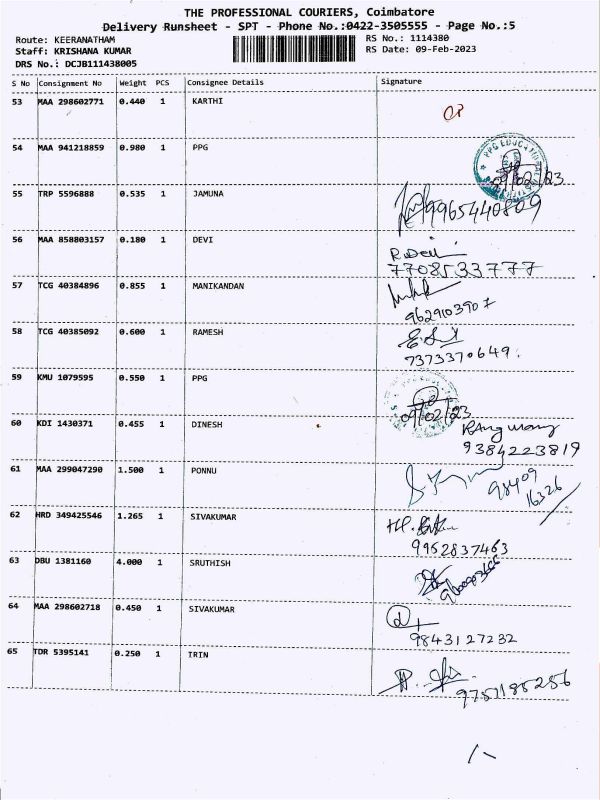 THE PROFESSIONAL COURIERS, Coimbatore
Delivery Runsheet - SPT - Phone No.:0422-3505555 - Page No.:5
Route: KEERANATHAM
RS No.: 1114380
Staff: KRISHANA KUMAR
RS Date: 09-Feb-2023
DRS No.: DCJB111438005
S No Consignment No Weight PCS Consignee Details Signature
53 MAA 298602771 0.440 1 KARTHI
54 MAA 941218859 0.980 1 PPG
09/02/23
55 TRP 5596888 0.535 1 JAMUNA
9965440809
56 MAA 858803157 0.180 1 DEVI
R.Devi
7708533777
57 TCG 40384896 0.855 1 MANIKANDAN
9629103907
58 TCG 40385092 0.600 1 RAMESH
7373370649.
59 KMU 1079595 0.550 1 PPG
09/02/23
60 KDI 1430371 0.455 1 DINESH
9384223819
61 MAA 299047290 1.500 1 PONNU
98409
16326
62 HRD 349425546 1.265 1 SIVAKUMAR
9952837463
63 DBU 1381160 4.000 1 SRUTHISH
64 MAA 298602718 0.450 1 SIVAKUMAR
9843127232
65 TDR 5395141 0.250 1 IRIN
9751185256